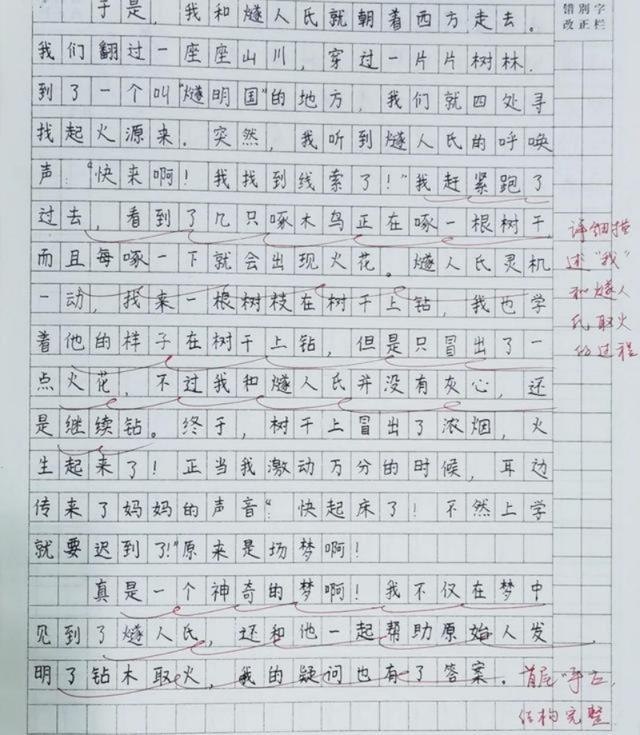 于是，我和燧人氏就朝着西方走去。
错别字
改正栏
我们翻过一座座山川，穿过一片片树林.
到了一个叫“燧明国”的地方，我们就四处寻
找起火源来.突然，我听到燧人氏的呼唤
声“快来啊！我找到线索了！”我赶紧跑了
过去，看到了几只啄木鸟正在啄一根树干，
而且每啄一下就会出现火花。燧人氏灵机
一动，找来一根树枝在树干上钻，我也学
着他的样子在树干上钻，但是只冒出了一
点火花，不过我和燧人氏并没有灰心，还
是继续钻。终于，树干上冒出了浓烟，火
生起来了！正当我激动万分的时候，耳边
传来了妈妈的声音“快起床了！不然上学
就要迟到了！”原来是场梦啊！
真是一个神奇的梦啊！我不仅在梦中
见到了燧人氏，还和他一起帮助原始人发
明了钻木取火，我的疑问也有了答案.
详细描
述“我”
和燧人
氏取火
的过程
首尾呼应，
结构完整